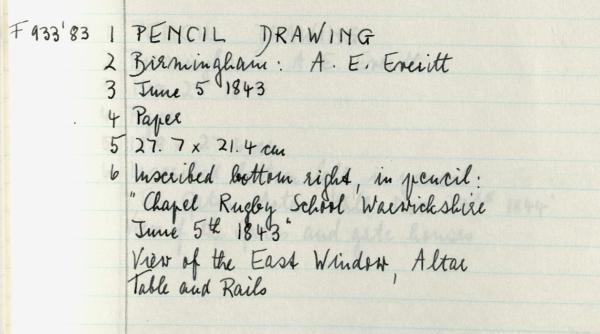 F 933'83 1 PENCIL DRAWING
2 Birmingham: A. E. Everitt
3 June 5 1843
4 Paper
5 27.7 x 21.4 cm
6 Inscribed bottom right, in pencil:
"Chapel Rugby School Warwickshire
June 5th 1843"
View of the East Window, Altar
Table and Rails